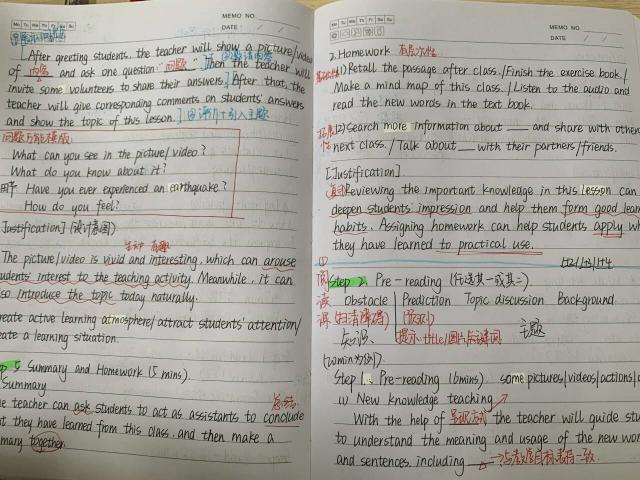 Mo Tu We Th Fr Sa Su
MEMO NO.
DATE / /
[After greeting students, the teacher will show a picture/video
of 内容 and ask one question: "问题". Then the teacher will
invite some volunteers to share their answers.] [After that, the
teacher will give corresponding comments on students' answers
and show the topic of this lesson.]
问题万能模版:
What can you see in the picture/video?
What do you know about it?
Have you ever experienced an earthquake?
How do you feel?
Justification] (设计意图)
生动 有趣
The picture/video is vivid and interesting, which can arouse
udents' interest to the teaching activity. Meanwhile, it can
so introduce the topic today naturally.
reate active learning atmosphere/attract students' attention/
eate a learning situation.
p 5 Summary and Homework (5 mins).
Summary
总结
e teacher can ask students to act as assistants to conclude
at they have learned from this class, and then make a
mary together.
Mo Tu We Th Fr Sa Su
MEMO NO.
DATE / /
2. Homework 有层次性
(1) Retall the passage after class./Finish the exercise book/
Make a mind map of this class./Listen to the audio and
read the new words in the text book.
(2) Search more information about ___ and share with others
next class./Talk about ___ with their partners/friends.
[Justification]
Reviewing the important knowledge in this lesson can
deepen students' impression and help them form good lear
habits. Assigning homework can help students apply wh
they have learned to practical use.
阅 Step 2 Pre-reading (任选其一或其二)
读 Obstacle Prediction Topic discussion Background
前 (扫清障碍) (预测)
知识 提示:title/图片/关键词 主题
Step 1. Pre-reading (6mins). some pictures/videos/actions/
(1) New knowledge teaching
With the help of 呈现方式 the teacher will guide stu
to understand the meaning and usage of the new wor
and sentences, including ___ → 与教学目标表有一致.